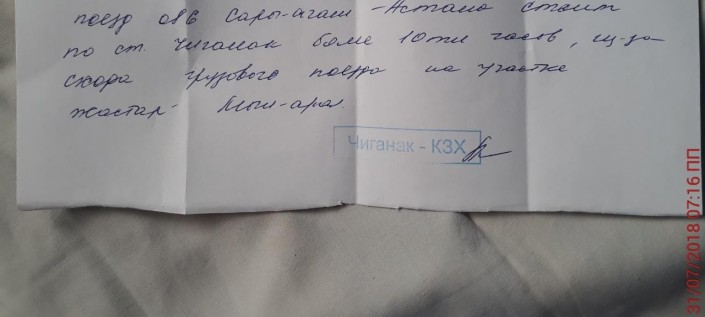 поезд 086 Сары-агаш - Астана стоит
по ст. Чиганак более 10ти часов, из-за
схода грузового поезда на участке
Жастар- Мын-арал
Чиганак - КЗХ
31/07/2018 07:16 ПП